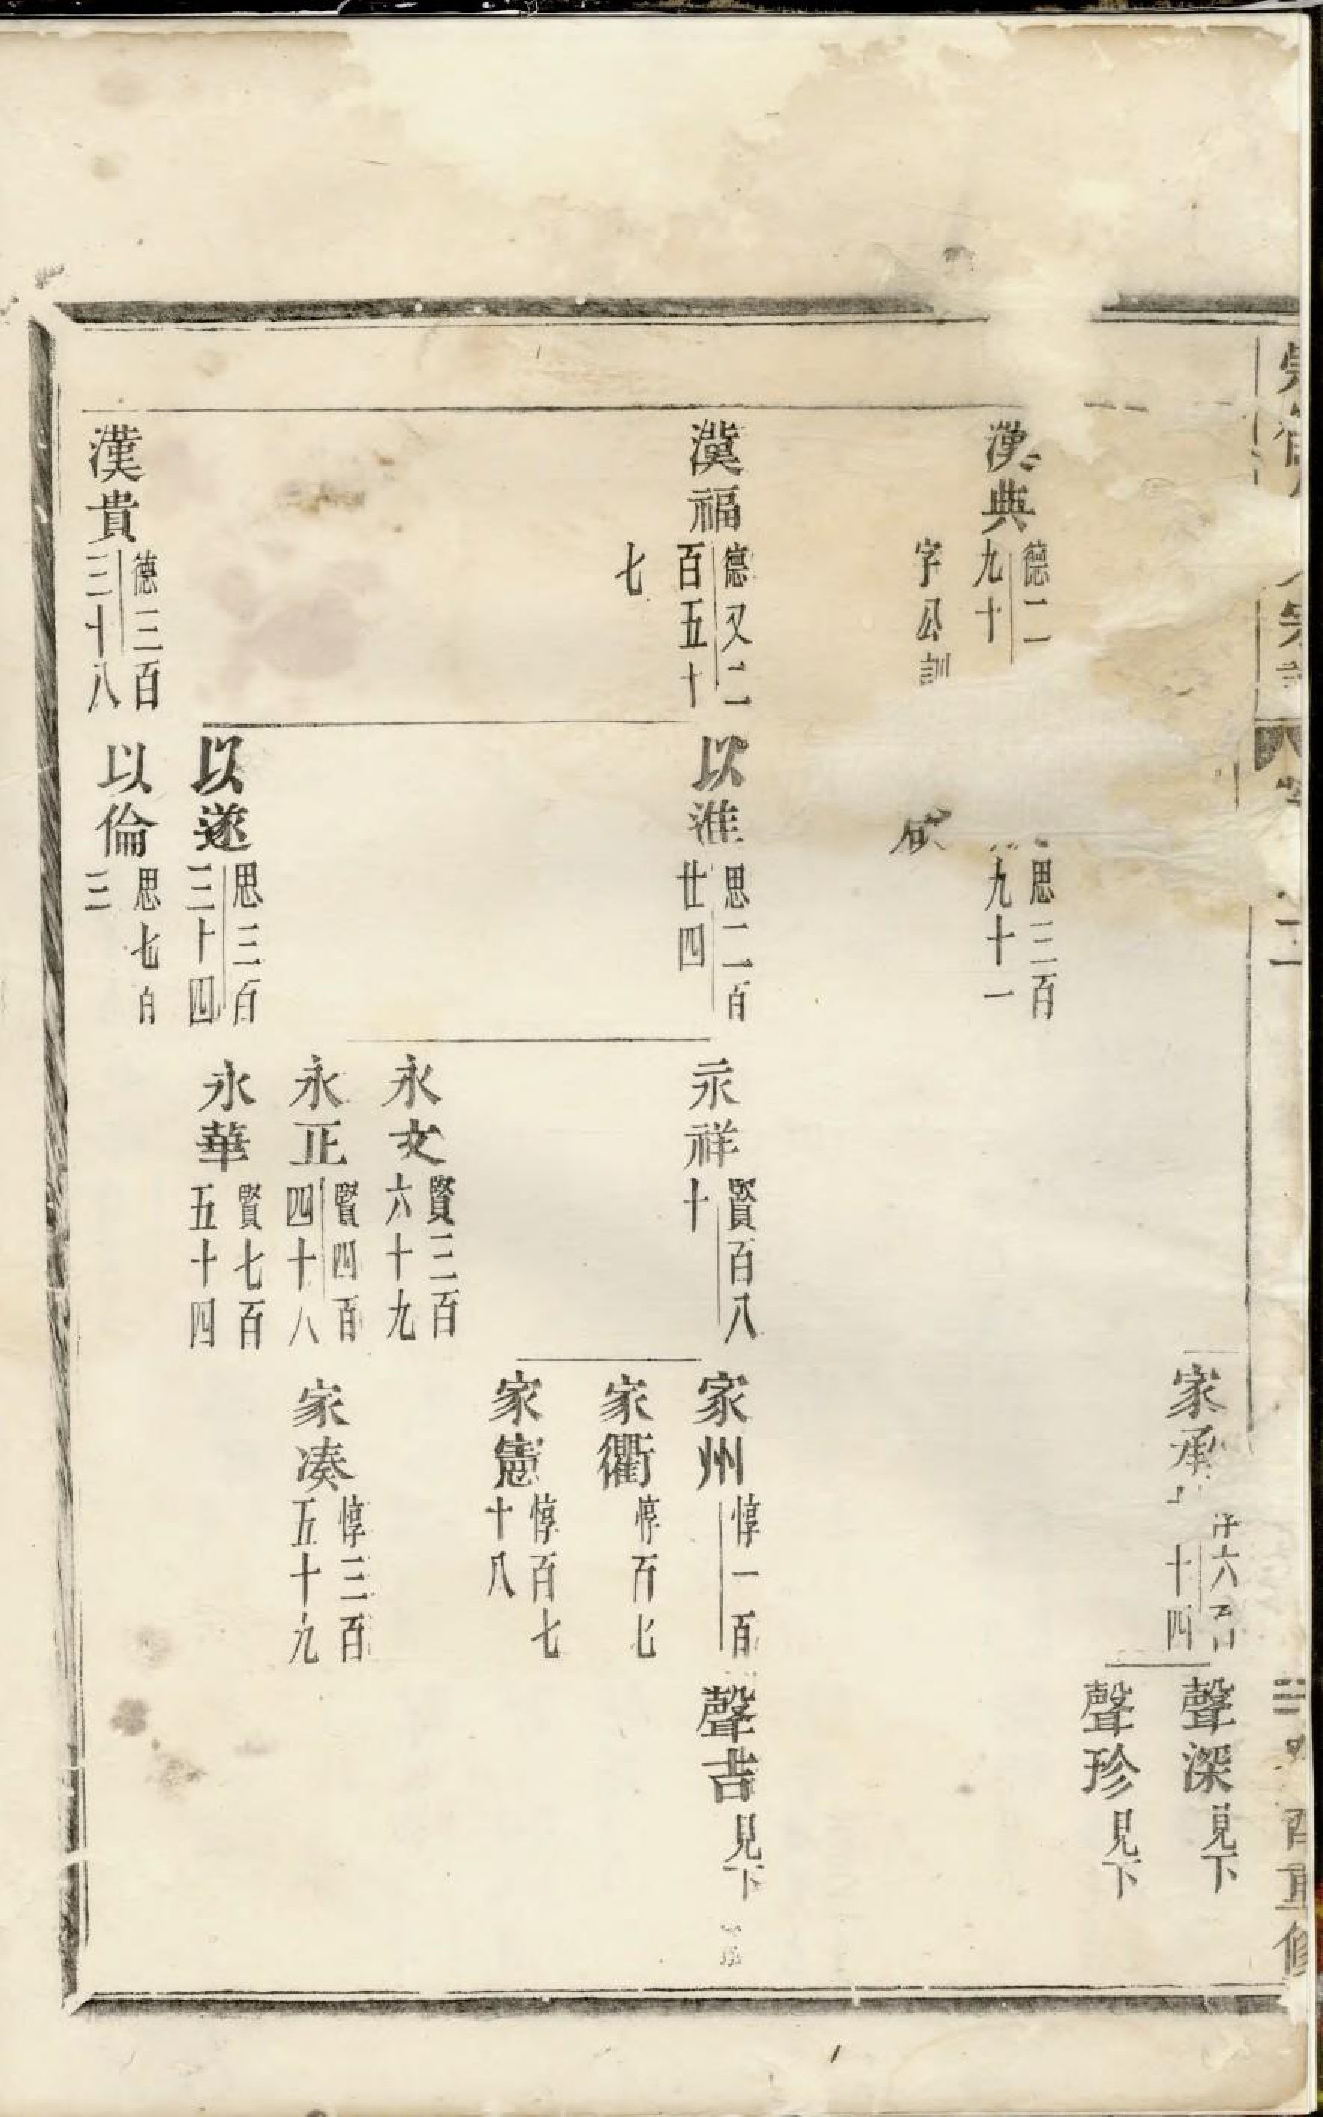 家承
六百
十四
聲深見下
聲珍見下
漢典
德二
九十
字公訓
思三百
九十一
漢福
德又二
百五十
七
以淮
思二百
廿四
永祥
賢百八
十
家州
惇一百
聲吉見下
家衢
惇百七
家憲
惇百七
十八
永文
賢三百
六十九
永正
賢四百
四十八
家凑
惇三百
五十九
以遂
思三百
三十四
永華
賢七百
五十四
漢貴
德三百
三十八
以倫
思七百
三